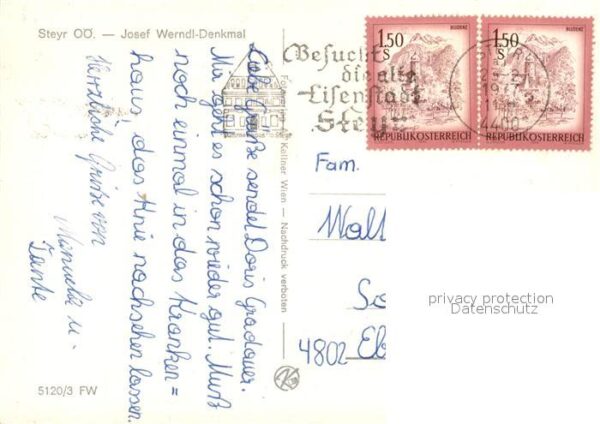 Steyr OÖ. — Josef Werndl-Denkmal
Liebe Grüße sendet Doris Gradauer.
Mir geht es schon wieder gut. Muß
noch einmal in das Kranken=
haus das Knie nachsehen lassen.
Herzliche Grüße von
Manuela u.
Tante
5120/3 FW
Kellner Wien — Nachdruck verboten
Besucht
die alte
Eisenstadt
Steyr
1.50
S
BLUDENZ
REPUBLIK ÖSTERREICH
1.50
S
BLUDENZ
REPUBLIK ÖSTERREICH
4400
Fam.
Walt
4802 Eb
privacy protection
Datenschutz